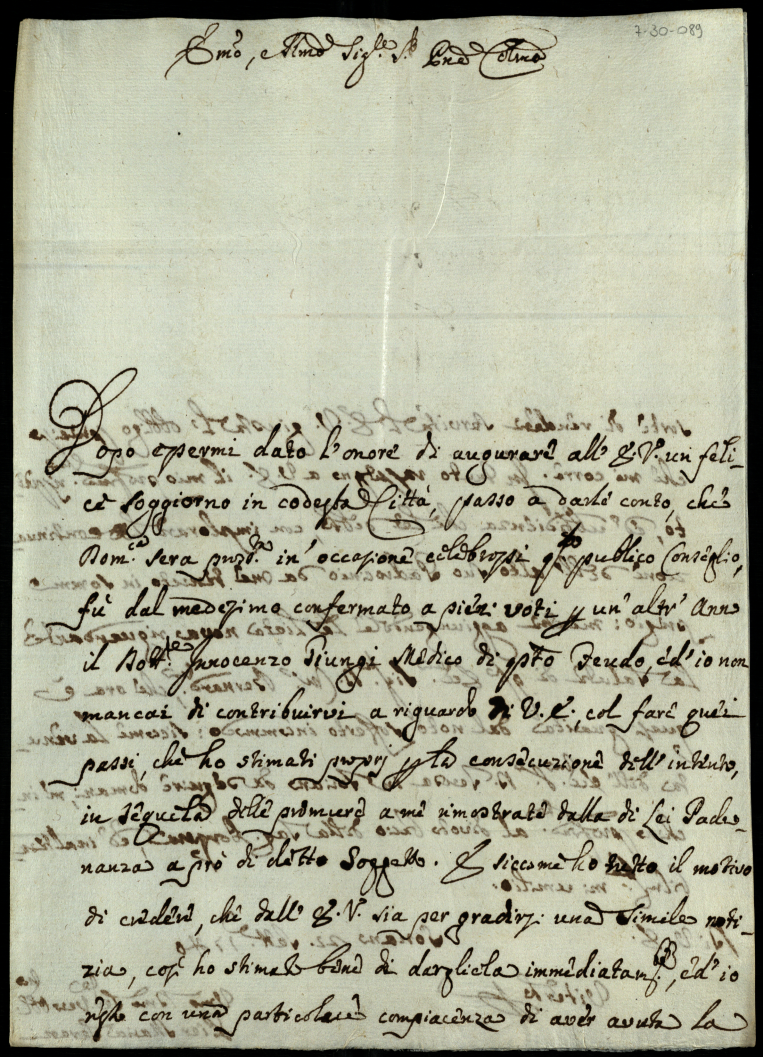 7-30-089
Emo, e Rmo Sig.re S.r Pne Colmo
Dopo essermi dato l'onore di augurare all' E.V. un feli-
ce soggiorno in codesta Città, passo a darle conto, che
Dom.ca sera in' occasione celebrossi q.to publico Consiglio,
fù dal medesimo confermato a pieni voti p un' altr' Anno
il Dott.re Innocenzo Giungi Medico di q.to Feudo, ed' io non
mancai di contribuirvi a riguardo di V.E., col fare quei
passi, che ho stimati proprj p la consecuzione dell' intento,
in sequela delle premure a me rimostrate dalla di Lei Padro-
nanza a prò di detto Soggetto. E siccome ho tutto il motivo
di credere, che dall' E.V. sia per gradirsi una simile noti-
zia, così ho stimato bene di dargliela immediatam.te, ed' io
con una particolare compiacenza di aver avuta la